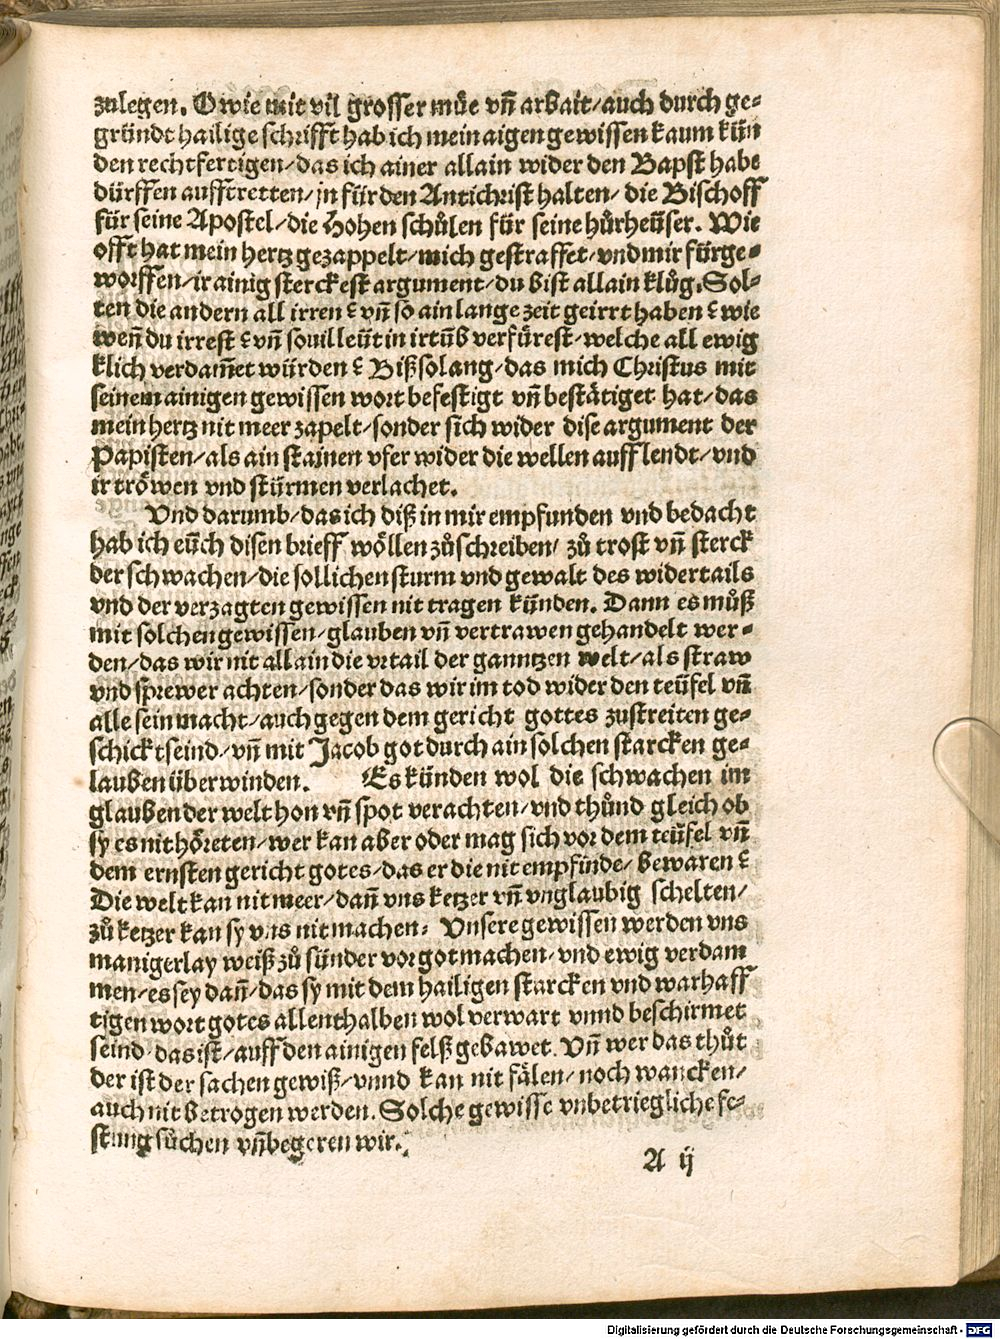 zulegen. O wie mit vil grosser müe vñ arbait/auch durch ge⸗
gründt hailige schrifft hab ich mein aigen gewissen kaum kün
den rechtfertigen/das ich ainer allain wider den Bapst habe
dürffen aufftretten/jn für den Antichrist halten/die Bischoff
für seine Apostel/die Hohen schůlen für seine hůrheüser. Wie
offt hat mein hertz gezappelt/mich gestraffet/vnd mir fürge⸗
worffen/ir ainig sterckest argument/du bist allain klůg. Sol⸗
ten die andern all irren? vñ so ain lange zeit geirrt haben? wie
weñ du irrest? vñ souil leüt in irtūb verfürest/welche all ewig
klich verdam̄et würden? Biß solang/das mich Christus mit
seinem ainigen gewissen wort befestigt vñ bestätiget hat/das
mein hertz nit meer zapelt/sonder sich wider dise argument der
Papisten/als ain stainen vfer wider die wellen auff lendt/vnd
ir tröwen vnd stürmen verlachet.
Vnd darumb/das ich diß in mir empfunden vnd bedacht
hab ich eüch disen brieff wöllen zůschreiben/zů trost vñ sterck
der schwachen/die sollichen sturm vnd gewalt des widertails
vnd der verzagten gewissen nit tragen künden. Dann es můß
mit solchen gewissen/glauben vñ vertrawen gehandelt wer⸗
den/das wir nit allain die vrtail der ganntzen welt/als straw
vnd sprewer achten/sonder das wir im tod wider den teüfel vñ
alle sein macht/auch gegen dem gericht gottes zustreiten ge⸗
schickt seind/vñ mit Jacob got durch ain solchen starcken ge⸗
lauben überwinden. Es künden wol die schwachen im
glauben der welt hon vñ spot verachten/vnd thůnd gleich ob
sy es nit höreten/wer kan aber oder mag sich vor dem teüfel vñ
dem ernsten gericht gotes/das er die nit empfinde/bewaren?
Die welt kan nit meer/dañ vns ketzer vñ vnglaubig schelten/
zů ketzer kan sy vns nit machen. Vnsere gewissen werden vns
manigerlay weiß zů sünder vor got machen/vnd ewig verdam
men/es sey dañ/das sy mit dem hailigen starcken vnd warhaff
tigen wort gotes allenthalben wol verwart vnnd beschirmet
seind/das ist/auff den ainigen felß gebawet. Vñ wer das thůt
der ist der sachen gewiß/vnnd kan nit fälen/noch wancken/
auch nit betrogen werden. Solche gewisse vnbetriegliche fe⸗
stung sůchen vñ begeren wir.
A ij
Digitalisierung gefördert durch die Deutsche Forschungsgemeinschaft - DFG